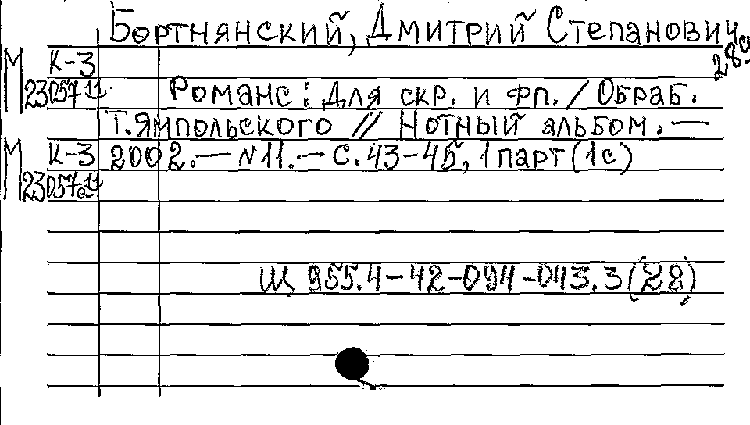 Бортнянский, Дмитрий Степанович
289
М К-3
23057.11
Романс: Для скр. и фп. / Обраб.
Т. Ямпольского // Нотный альбом. —
М К-3 2002. — N11. — С. 43-45, 1 парт (1с)
Щ 955.4-42-094-043.3 (28)